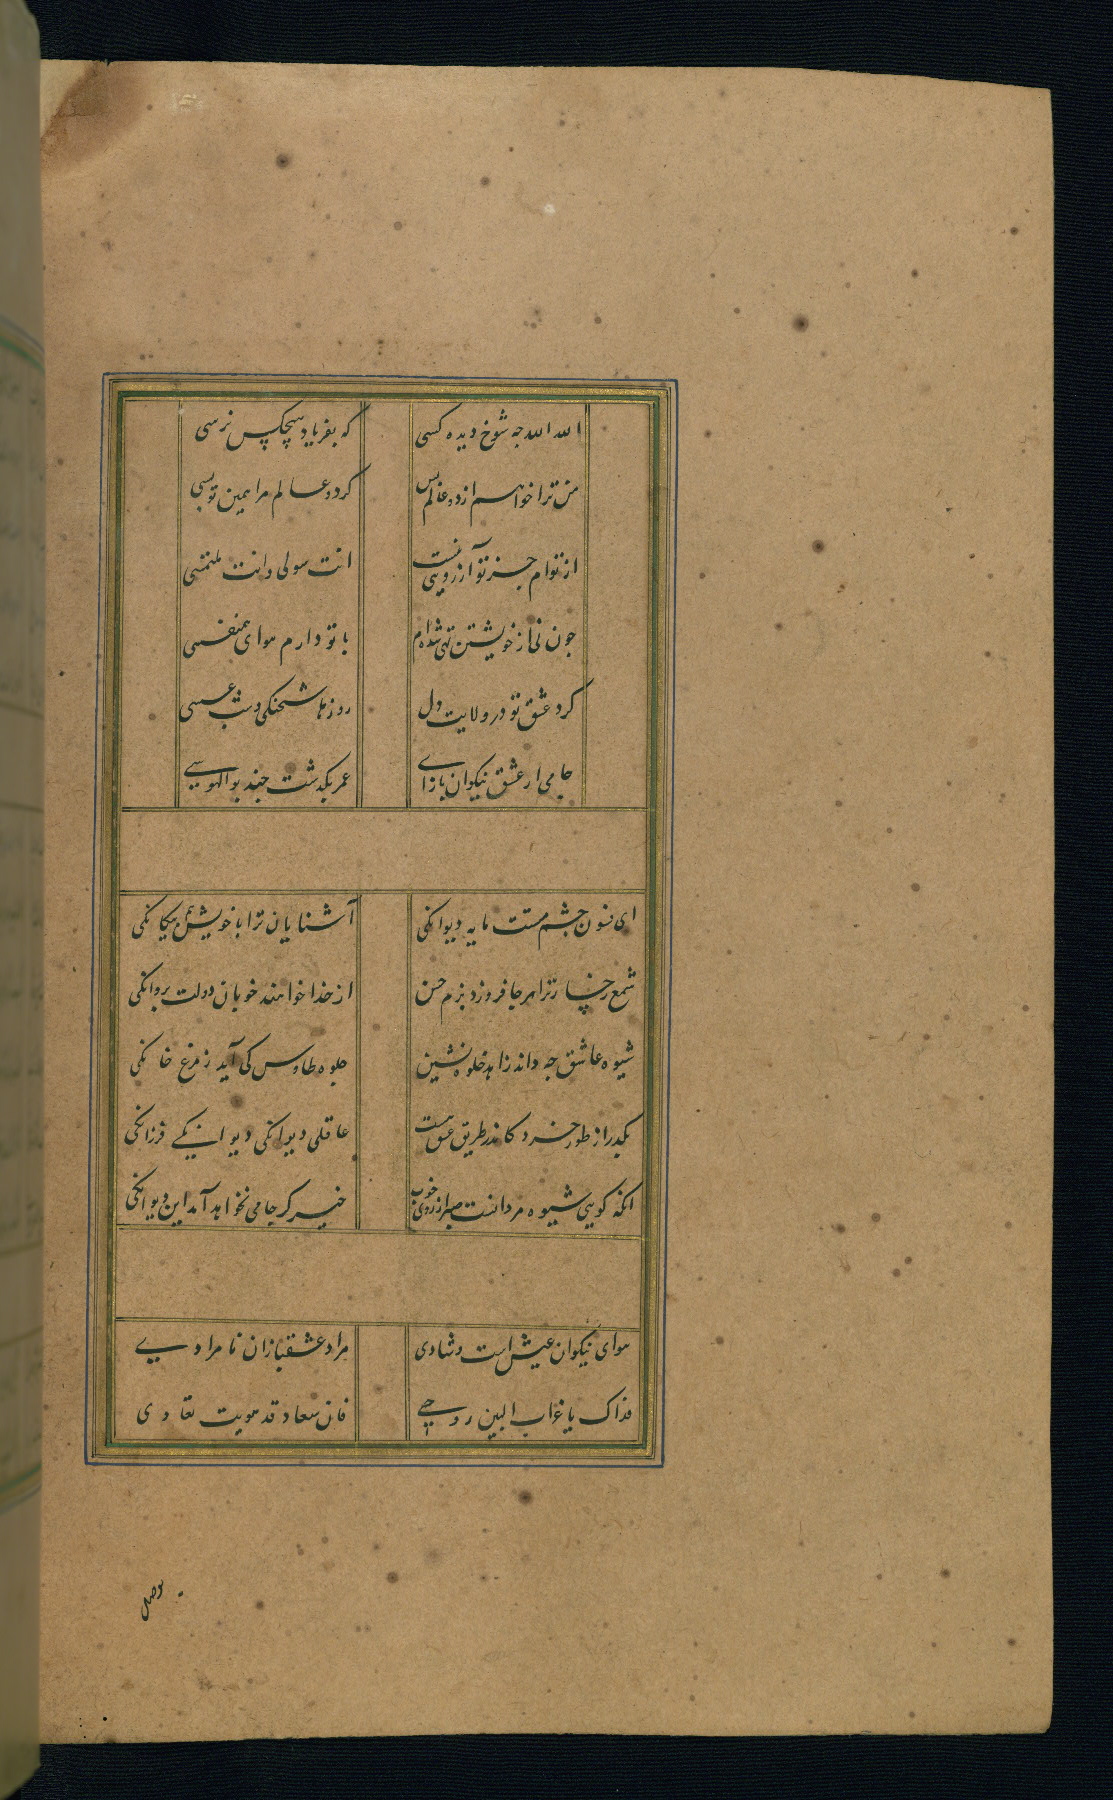 الله الله جه شوخ دیده کسی که بفریاد هیچکس نرسی
من ترا خواهم از دو عالم بس کر دو عالم مرا همین تو بسی
از توام جز تو آرزویی نیست انت سولی و انت ملتمسی
جون نی از خویشتن تهی شده‌ام با تو دارم هوای همنفسی
کرد عشق تو در ولایت دل روزها شحنکی و شب عسسی
جامی از عشق نیکوان بازآی عمر بکذشت جند بوالهوسی
ای فسون جشم مستت مایه دیوانکی آشنایان ترا با خویش بیکانکی
شمع رخسار ترا هر جا فروزد بزم حسن از خدا خواهند خوبان دولت بروانکی
شیوه عاشق جه داند زاهد خلوه نشین جلوه طاوس کی آید ز مرغ خانکی
بکذر از طور خرد کاندر طریق عشق هست عاقلی دیوانکی دیوانکی فرزانکی
انکه کویی شیوه مردانست صبر از روی خوب خیز کز جامی نخواهد آمد این دیوانکی
هوای نیکوان عیش است و شادی مراد عشقبازان نامرادی
فذاک یا غراب البین روحی فان سعاد قد هویت تعادی
بوصل